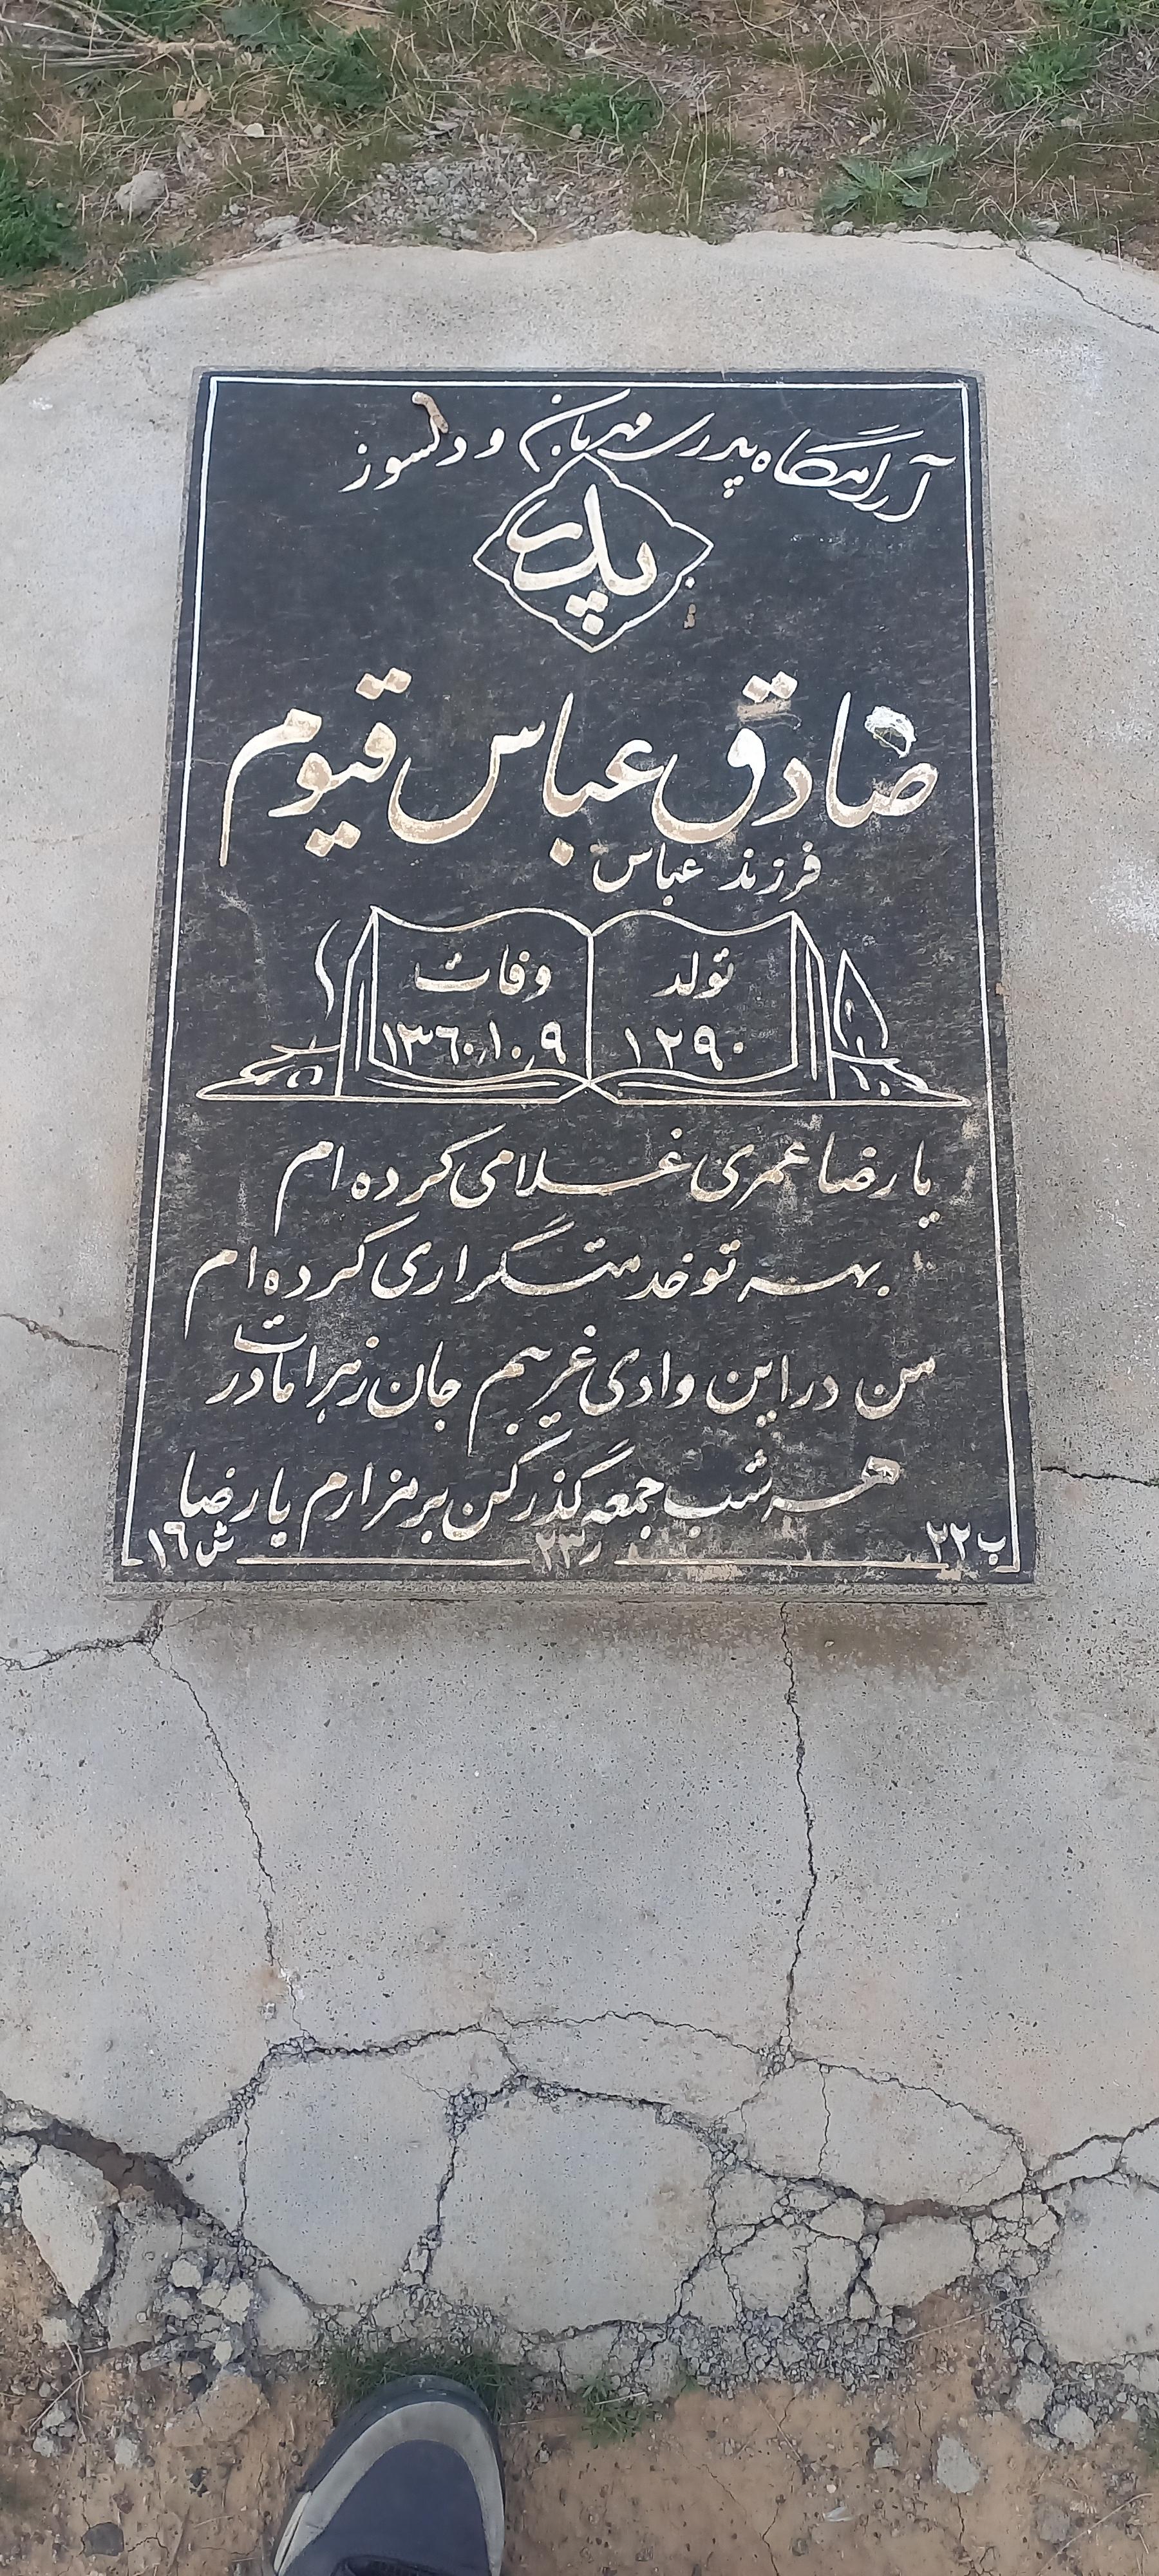 آرامگاه پدری مهربان و دلسوز
پدر
صادق عباس قیوم
فرزند عباس
تولد
۱۲۹۰
وفات
۱۳۶۰٫۱۰٫۹
یا رضا عمری غلامی کرده ام
بهر تو خدمتگزاری کرده ام
من در این وادی غریبم جان زهرا مادرت
هر شب جمعه گذر کن بر مزارم یا رضا
ب ۲۲
ر ۲۳
ش ۱۶